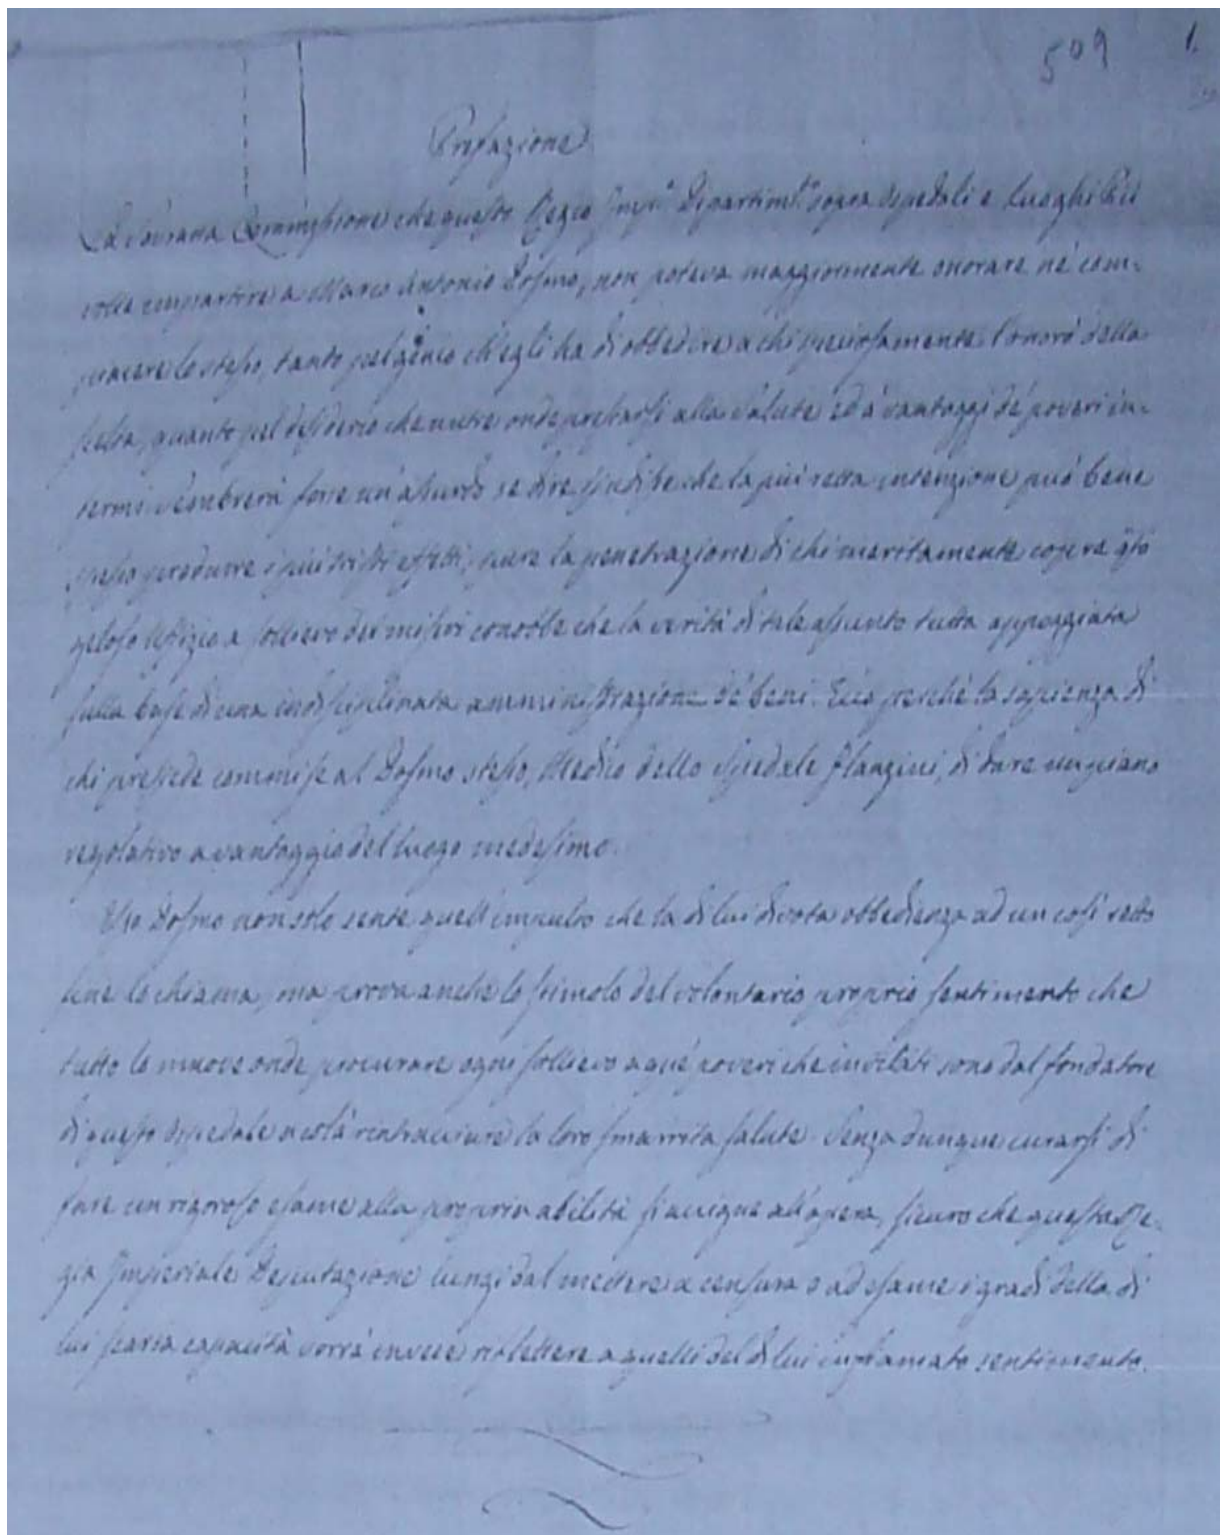 509 1.
Prefazione
La Sovrana Commissione che questo Regio Imp.l Dipartim.to sopra Ospedali e Luoghi Pii
volle impartire a Marco Antonio Dosmo, non poteva maggiormente onorare nè com-
piacere lo stesso, tanto pel genio ch'egli ha di obbedire a chi graziosamente l'onorò della
scelta, quanto pel desiderio che nutre onde prestarsi alla salute ed a' vantaggi de' poveri in-
fermi. Sembrerà forse un assurdo se dire che la più retta intenzione può bene
spesso produrre i più tristi effetti, pure la penetrazione di chi meritamente copre q.to
geloso Uffizio a sollievo dei miseri conobbe che la verità di tale assunto tutta appoggiata
sulla base di una indisciplinata amministrazione de' beni. Ecco perchè la sapienza di
chi presiede commise al Dosmo stesso, Medico dello Spedale Flangini, di dare un piano
regolativo a vantaggio del luogo medesimo.
Esso Dosmo non solo sente quell'impulso che la di lui divota obbedienza ad un così retto
fine lo chiama, ma prova anche lo stimolo del volontario proprio sentimento che
tutto lo muove onde procurare ogni sollievo a que' poveri che invitati sono dal fondatore
di questo Ospedale a colà rintracciare la loro smarrita salute. Senza dunque curarsi di
fare un rigoroso esame alla propria abilità si accigne all'opera, sicuro che questa Re-
gia Imperiale Deputazione lungi dal mettere a censura o ad esame i gradi della di
lui scarsa capacità vorrà invece riflettere a quelli del di lui infiammato sentimento.